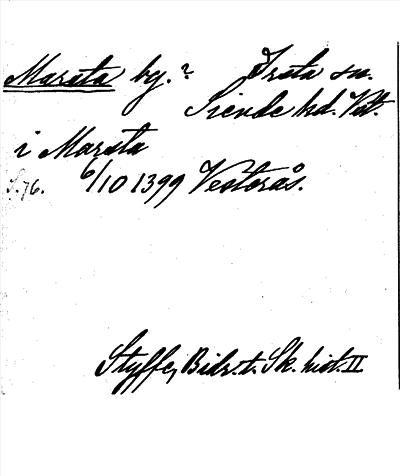 Marsta by.? Irsta sn.
Siende hd. Vstm.
i Marsta
S. 76. 6/10 1399 Vesterås.
Styffe, Bidr. t. Sk. hist. II